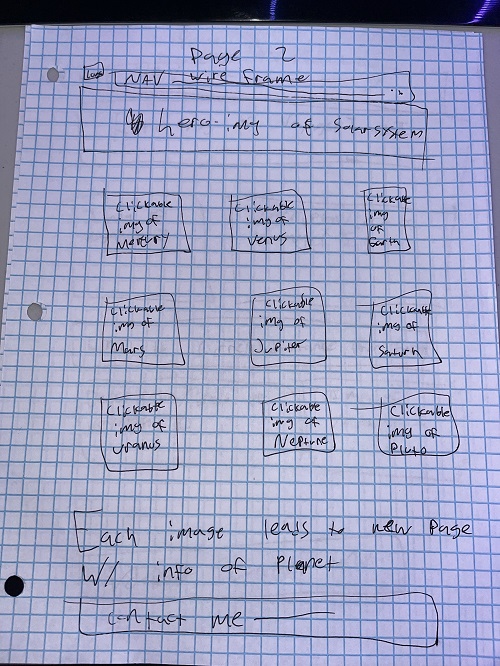 Page 2
Wire frame
Logo
NAV
hero img of Solarsystem
Clickable
img of
Mercury
Clickable
img of
Venus
Clickable
img
of
Earth
Clickable
img of
Mars
Clickable
img of
Jupiter
Clickable
img of
Saturn
Clickable
img of
Uranus
Clickable
img of
Neptune
Clickable
img of
Pluto
Each image leads to new Page
W/ info of Planet
contact me